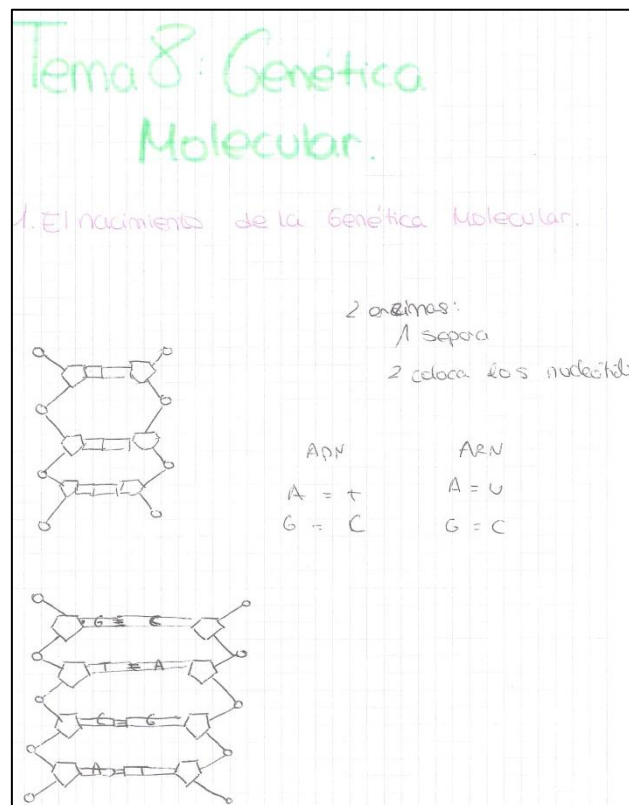 Tema 8: Genética
Molecular.
1. El nacimiento de la Genética Molecular.
2 enzimas:
1 separa
2 coloca los nucleótid
ADN ARN
A = T A = U
G = C G = C
G ≡ C
T = A
C ≡ G
A = T